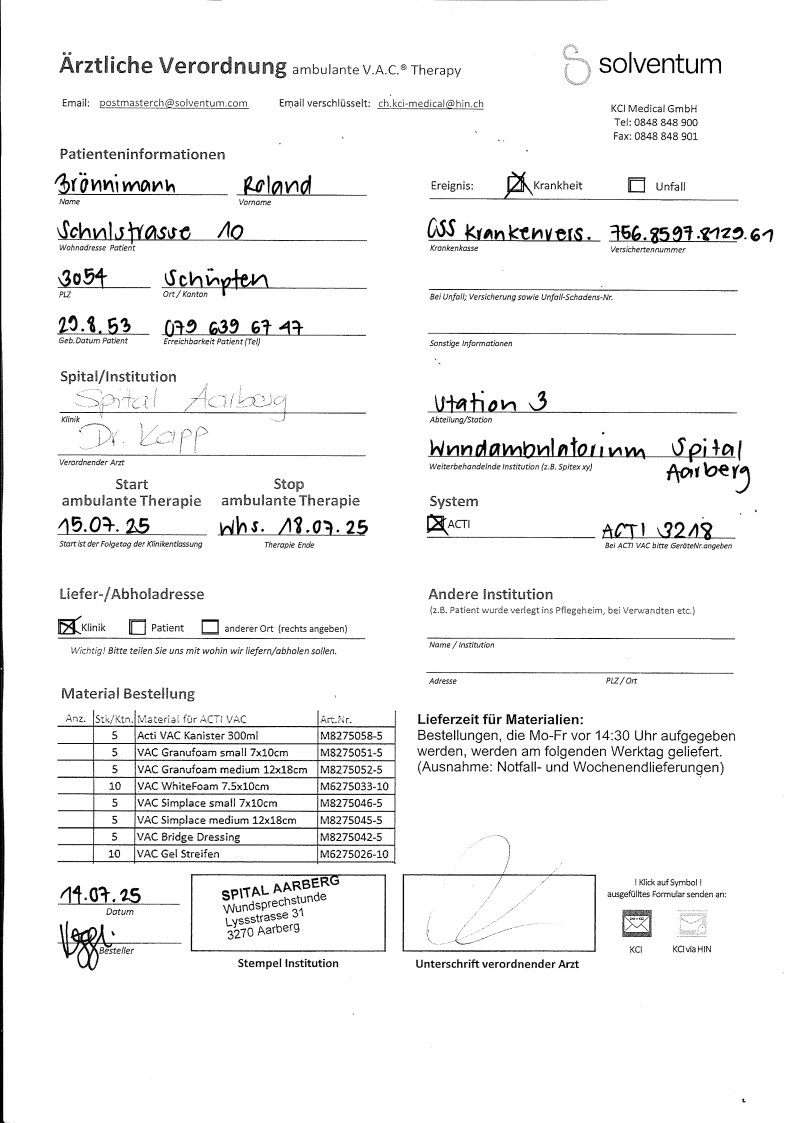 Ärztliche Verordnung ambulante V.A.C.® Therapy
solventum
Email: postmasterch@solventum.com Email verschlüsselt: ch.kci-medical@hin.ch
KCI Medical GmbH
Tel: 0848 848 900
Fax: 0848 848 901
Patienteninformationen
Brönnimann Roland
Name Vorname
Ereignis: Krankheit Unfall
Schulstrasse 10
Wohnadresse Patient
CSS Krankenvers. 756.8597.8129.61
Krankenkasse Versichertennummer
3054 Schüpfen
PLZ Ort / Kanton
Bei Unfall; Versicherung sowie Unfall-Schadens-Nr.
29.8.53 079 639 67 17
Geb.Datum Patient Erreichbarkeit Patient (Tel)
Sonstige Informationen
Spital/Institution
Spital Aarberg
Klinik
Station 3
Abteilung/Station
Dr. Kapp
Verordnender Arzt
Wundambulatorium Spital
Aarberg
Weiterbehandelnde Institution (z.B. Spitex xy)
Start ambulante Therapie
Stop ambulante Therapie
15.07.25 Whs. 18.07.25
Start ist der Folgetag der Klinikentlassung Therapie Ende
System
ACTI ACTI 3218
Bei ACTI VAC bitte GeräteNr.angeben
Liefer-/Abholadresse
Klinik Patient anderer Ort (rechts angeben)
Wichtig! Bitte teilen Sie uns mit wohin wir liefern/abholen sollen.
Andere Institution
(z.B. Patient wurde verlegt ins Pflegeheim, bei Verwandten etc.)
Name / Institution
Adresse PLZ / Ort
Material Bestellung
Anz. Stk/Ktn. Material für ACTI VAC Art.Nr.
5 Acti VAC Kanister 300ml M8275058-5
5 VAC Granufoam small 7x10cm M8275051-5
5 VAC Granufoam medium 12x18cm M8275052-5
10 VAC WhiteFoam 7.5x10cm M6275033-10
5 VAC Simplace small 7x10cm M8275046-5
5 VAC Simplace medium 12x18cm M8275045-5
5 VAC Bridge Dressing M8275042-5
10 VAC Gel Streifen M6275026-10
Lieferzeit für Materialien:
Bestellungen, die Mo-Fr vor 14:30 Uhr aufgegeben
werden, werden am folgenden Werktag geliefert.
(Ausnahme: Notfall- und Wochenendlieferungen)
14.07.25
Datum
Besteller
SPITAL AARBERG
Wundsprechstunde
Lyssstrasse 31
3270 Aarberg
Stempel Institution
Unterschrift verordnender Arzt
! Klick auf Symbol !
ausgefülltes Formular senden an:
KCI KCI via HIN